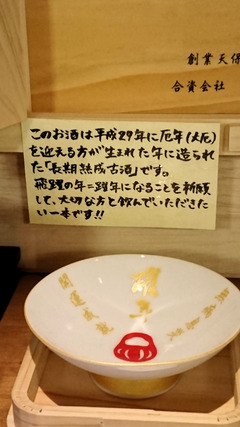 創業天保
合資会社
このお酒は平成29年に厄年(大厄)
を迎える方が生まれた年に造られ
た「長期熟成古酒」です。
飛躍の年=躍年になることを祈願
して、大切な方と飲んでいただきた
い一本です!!
開運